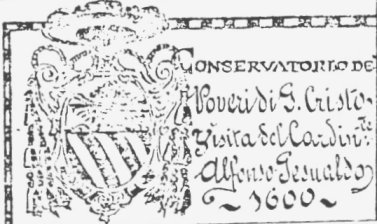 CONSERVATORIO DE'
Poveri di G. Cristo.
Visita del Cardin.le
Alfonso Gesualdo
~ 1600 ~